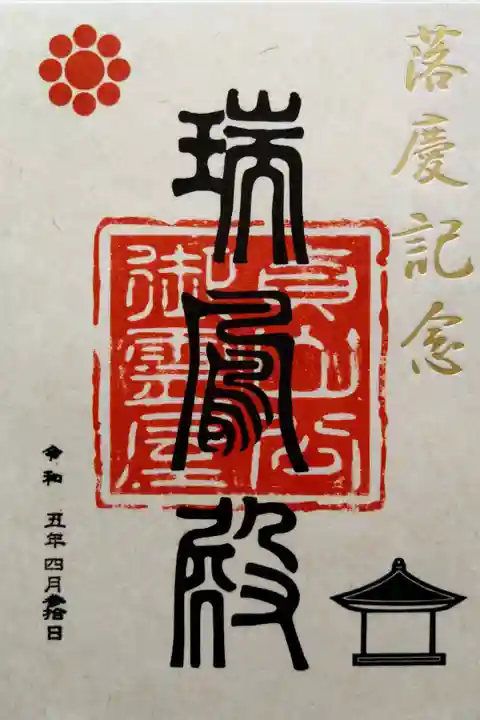 落慶記念
瑞鳳殿
貞山公
御霊屋
令和 五年四月参拾日